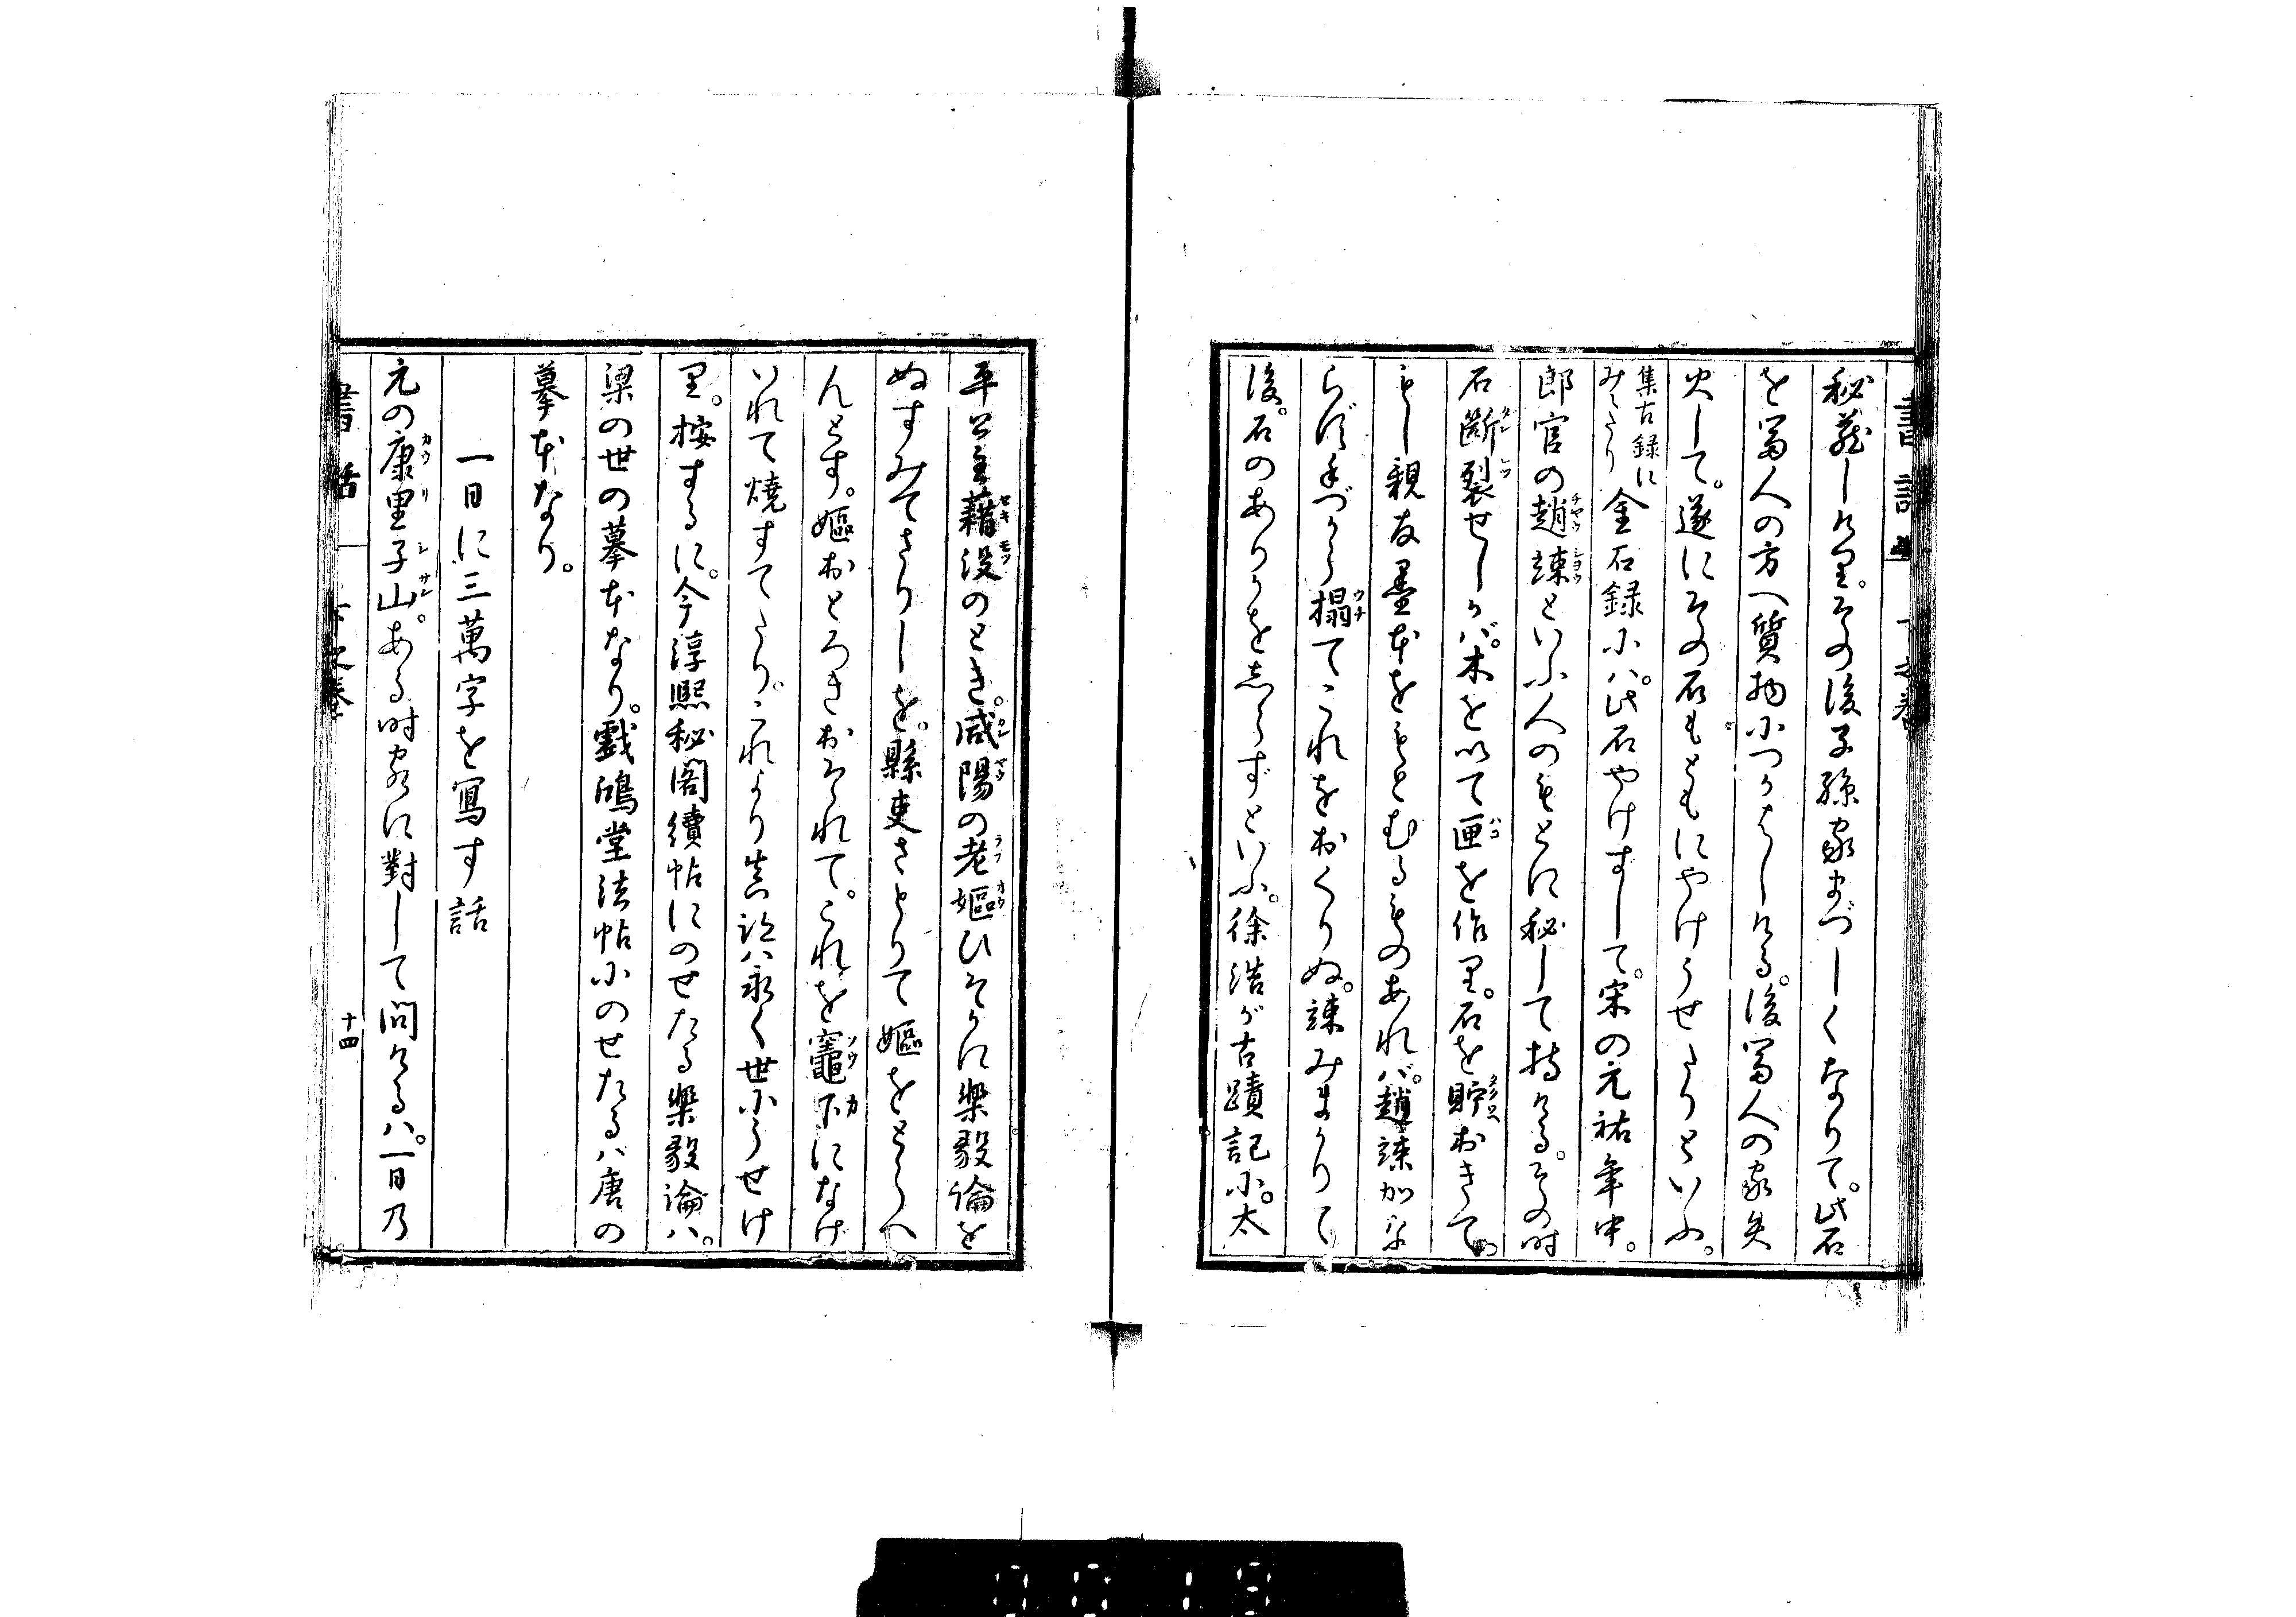 書話 下之巻
秘蔵しけり。その後子孫家まづしくなりて。此石
を冨人の方へ質物につかはしける。後冨人の家失
火して。遂にその石もともにやけうせたりといふ。
集古録に
みえたり
金石録には。此石やけずして。宋の元祐年中。
郎官の趙竦といふ人のもとに秘して持ける。その時
石断裂せしかば。木を以て匣を作り。石を貯おきて。
もし親友墨本をもとむるものあれば。趙竦かな
らず手づから搨てこれをおくりぬ。竦みまかりて
後。石のありかを志らずといふ。徐浩が古蹟記に。太
平公主藉没のとき。咸陽の老嫗ひそかに樂毅論を
ぬすみてさりしを。縣吏さとりて嫗をとらへ
んとす。嫗おとろきおそれて。これを竈下になげ
いれて燒すてたり。これより真跡ハ永く世にうせけ
り。按するに。今淳熙秘閣續帖にのせたる樂毅論ハ。
梁の世の摹本なり。戲鴻堂法帖にのせたるハ唐の
摹本なり。
一日に三萬字を寫す話
元の康里子山。ある時客に對して問けるハ。一日乃
書話 下之巻 十四